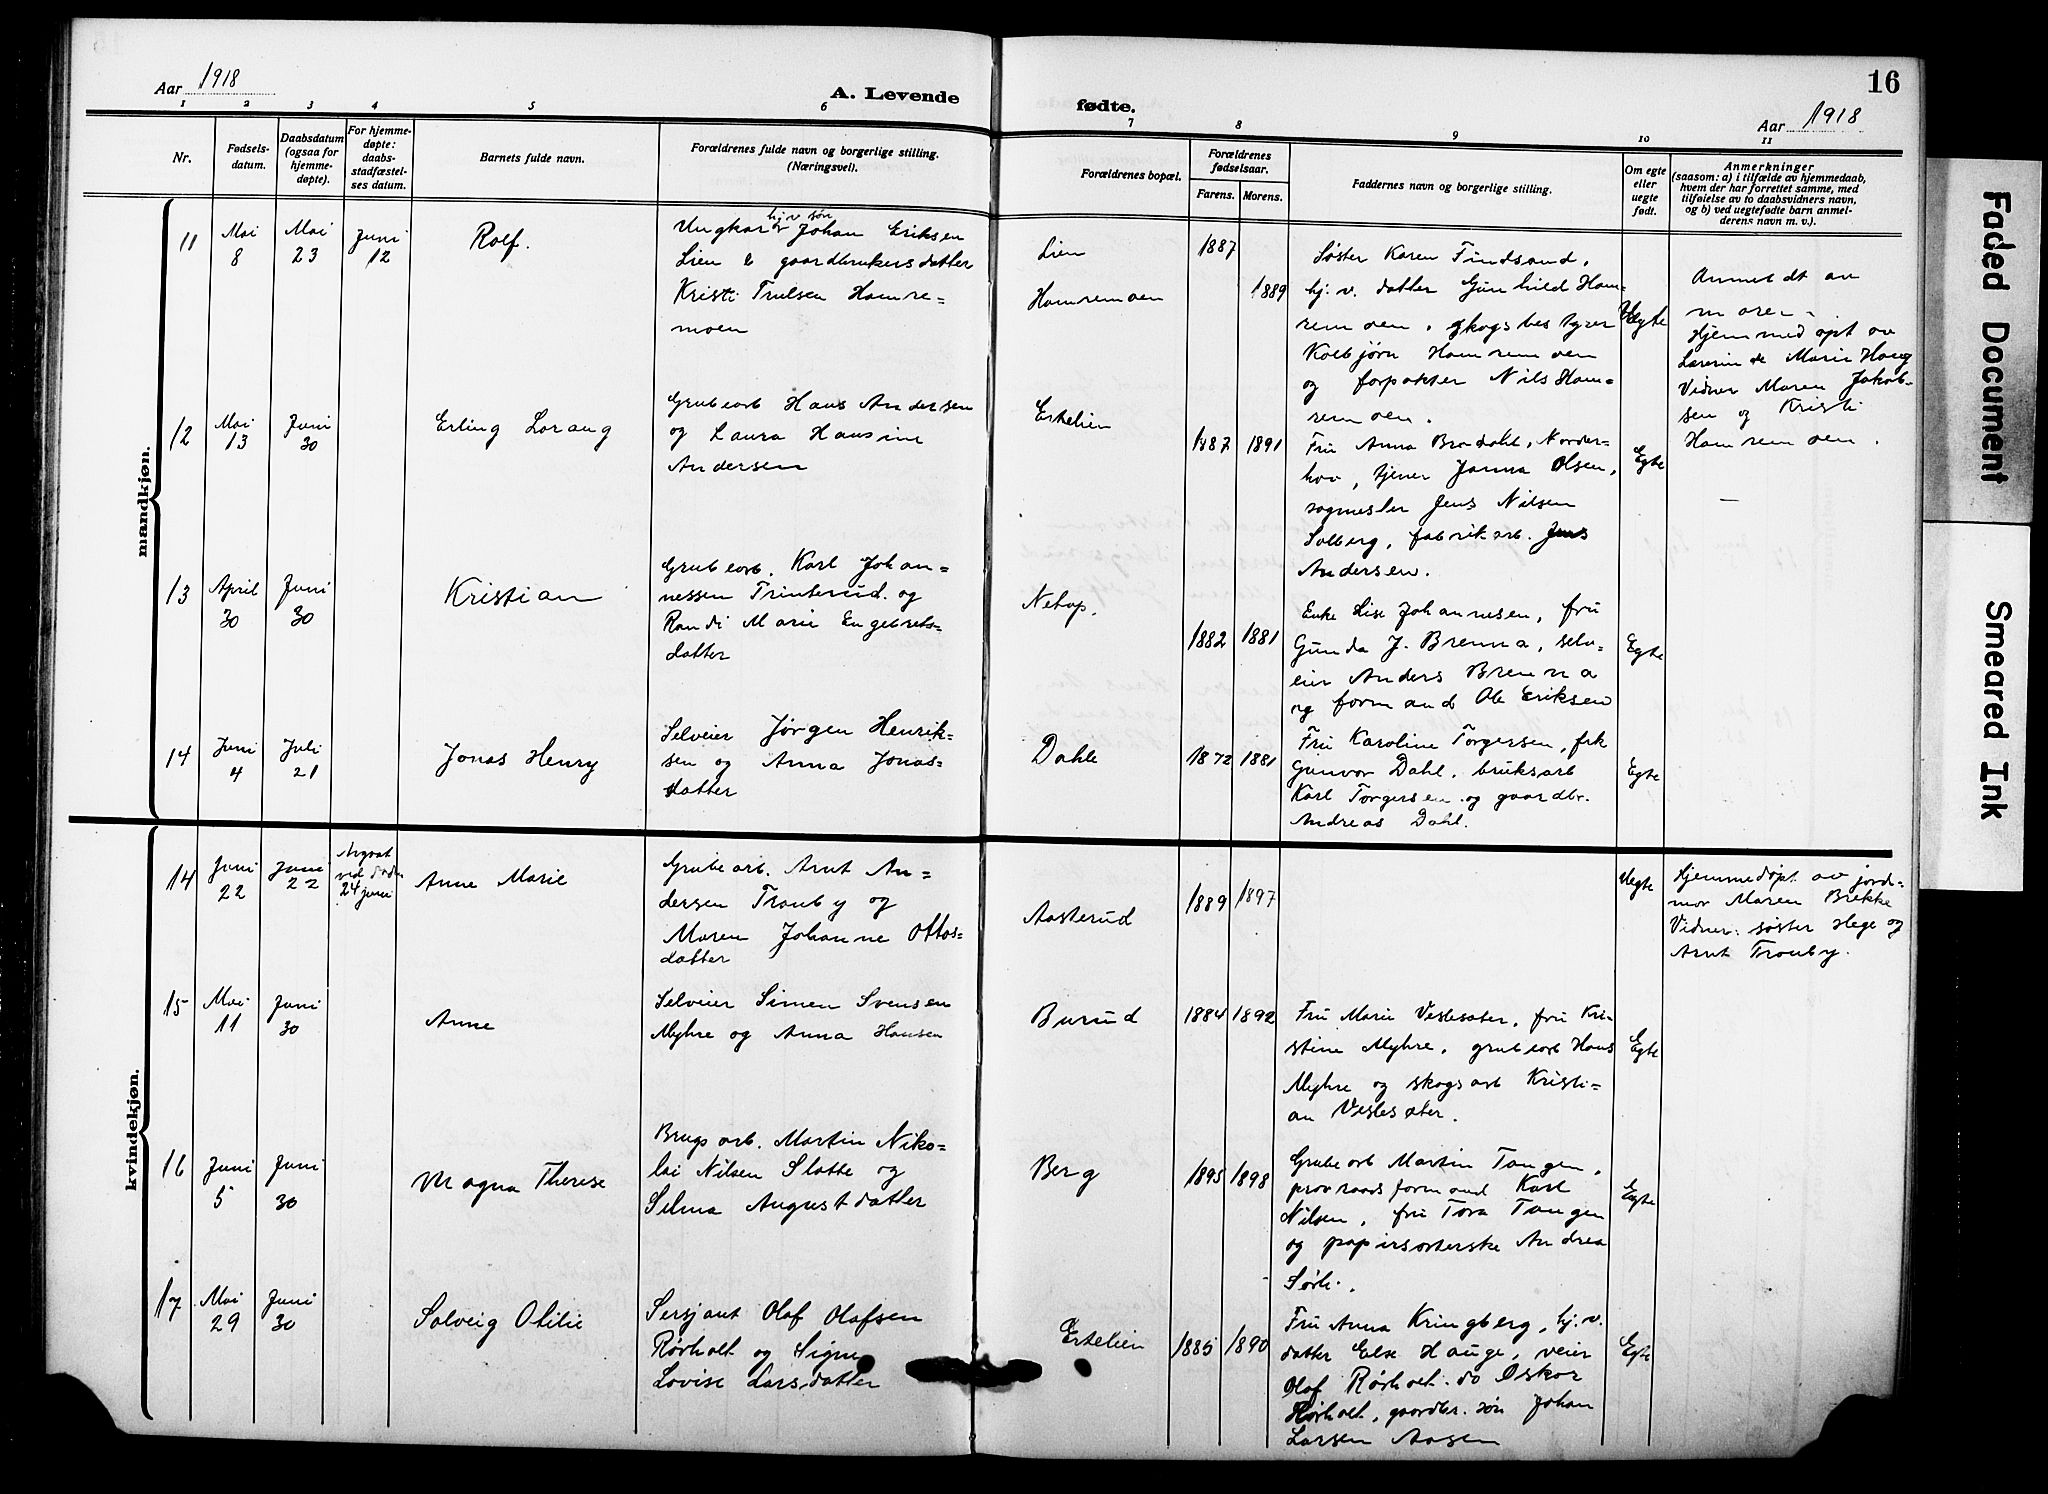 Aar 1918
A. Levende
fødte.
16
Aar 1918
1 2 3 4 5 6 7 8 9 10 11
Nr.
Fødsels-
datum.
Daabsdatum
(ogsaa for
hjemme-
døpte).
For hjemme-
døpte:
daabs-
stadfæstel-
ses datum.
Barnets fulde navn.
Forældrenes fulde navn og borgerlige stilling.
(Næringsvei).
Forældrenes bopæl.
Forældrenes
fødselsaar.
Farens. Morens.
Faddernes navn og borgerlige stilling.
Om egte
eller
uegte
født.
Anmerkninger
(saasom: a) i tilfælde av hjemmedaab,
hvem der har forrettet samme, med
tilføielse av to daabsvidners navn,
og b) ved uegtefødte barn anmel-
derens navn m. v.).
mandkjøn.
11
Mai
8
Mai
23
Juni
12
Rolf.
hj. v. søn
Ungkar Johan Eriksen
Lien & gaardbrukersdatter
Kristi Trulsen Hamre-
moen
Lien
Hamremoen
1887
1889
Søster Karen Tindsand,
hj. v. datter Gunhild Ham-
remoen, skogsbestyrer
Kolbjørn Hamremoen
og forpakter Nils Ham-
remoen.
Uegte
Anmeldt av
moren.
Hjemmedøpt av
Lærerinde Marie Haug
Vidner Maren Jakob-
sen og Kristi
Hamremoen.
12
Mai
13
Juni
30
Erling Lorang
Grubearb Hans Andersen
og Laura Hansine
Andersen
Ertelien
1887 1891
Fru Anna Bradahl, Norder-
hov, tjener Janna Olsen,
sagmester Jens Nilsen
Solberg, fabrikarb. Jens
Andersen.
Egte
–
13
April
30
Juni
30
Kristian
Grubearb. Karl Johan-
nessen Trinterud og
Randi Marie Engebrets-
datter
Nakop.
1882 1881
Enke Lise Johannesen, fru
Gunda J. Brenna, selv-
eier Anders Brenna
og formand Ole Eriksen
Egte
14
Juni
4
Juli
21
Jonas Henry
Selveier Jørgen Henrik-
sen og Anna Jonas-
datter
Dahle
1872 1881
Fru Karoline Torgersen, frk
Gunvor Dahl, bruksarb
Karl Torgersen og gaardbr.
Andreas Dahl.
Egte
kvindekjøn.
14
Juni
22
Juni
22
Avgaat
ved døden
24 juni
Anne Marie
Grubearb. Arnt An-
dersen Tronby og
Maren Johanne Ottos-
datter
Aasterud
1889 1897
Uegte
Hjemmedøpt av jord-
mor Maren Brekke
Vidner: søster Hege og
Arnt Tronby.
15
Mai
11
Juni
30
Anne
Selveier Simen Svensen
Myhre og Anna Hansen
Burud
1884 1892
Fru Marie Veslesæter, fru Kri-
stine Myhre, grubearb Hans
Myhre og skogsarb Kristi-
an Veslesæter.
Egte
16
Juni
5
Juni
30
Magna Therese
Brugsarb. Martin Niko-
lai Nilsen Slatte og
Selma Augustdatter
Berg
1895 1898
Grubearb Martin Tangen,
formand Karl
Nilsen, fru Tora Tangen
og papirsorterske Andrea
Sørli.
Egte
17
Mai
29
Juni
30
Solveig Otilie
Sersjant Olaf Olafsen
Rørholt og Signe
Lovise Larsdatter
Ertelien
1885 1890
Fru Anna Kringberg, hj. v.
datter Else Hauge, veier
Olaf Rørholt. do Oskar
Rørholt, gaardbr. søn Johan
Larsen Aasen
Egte
Faded Document
Smeared Ink